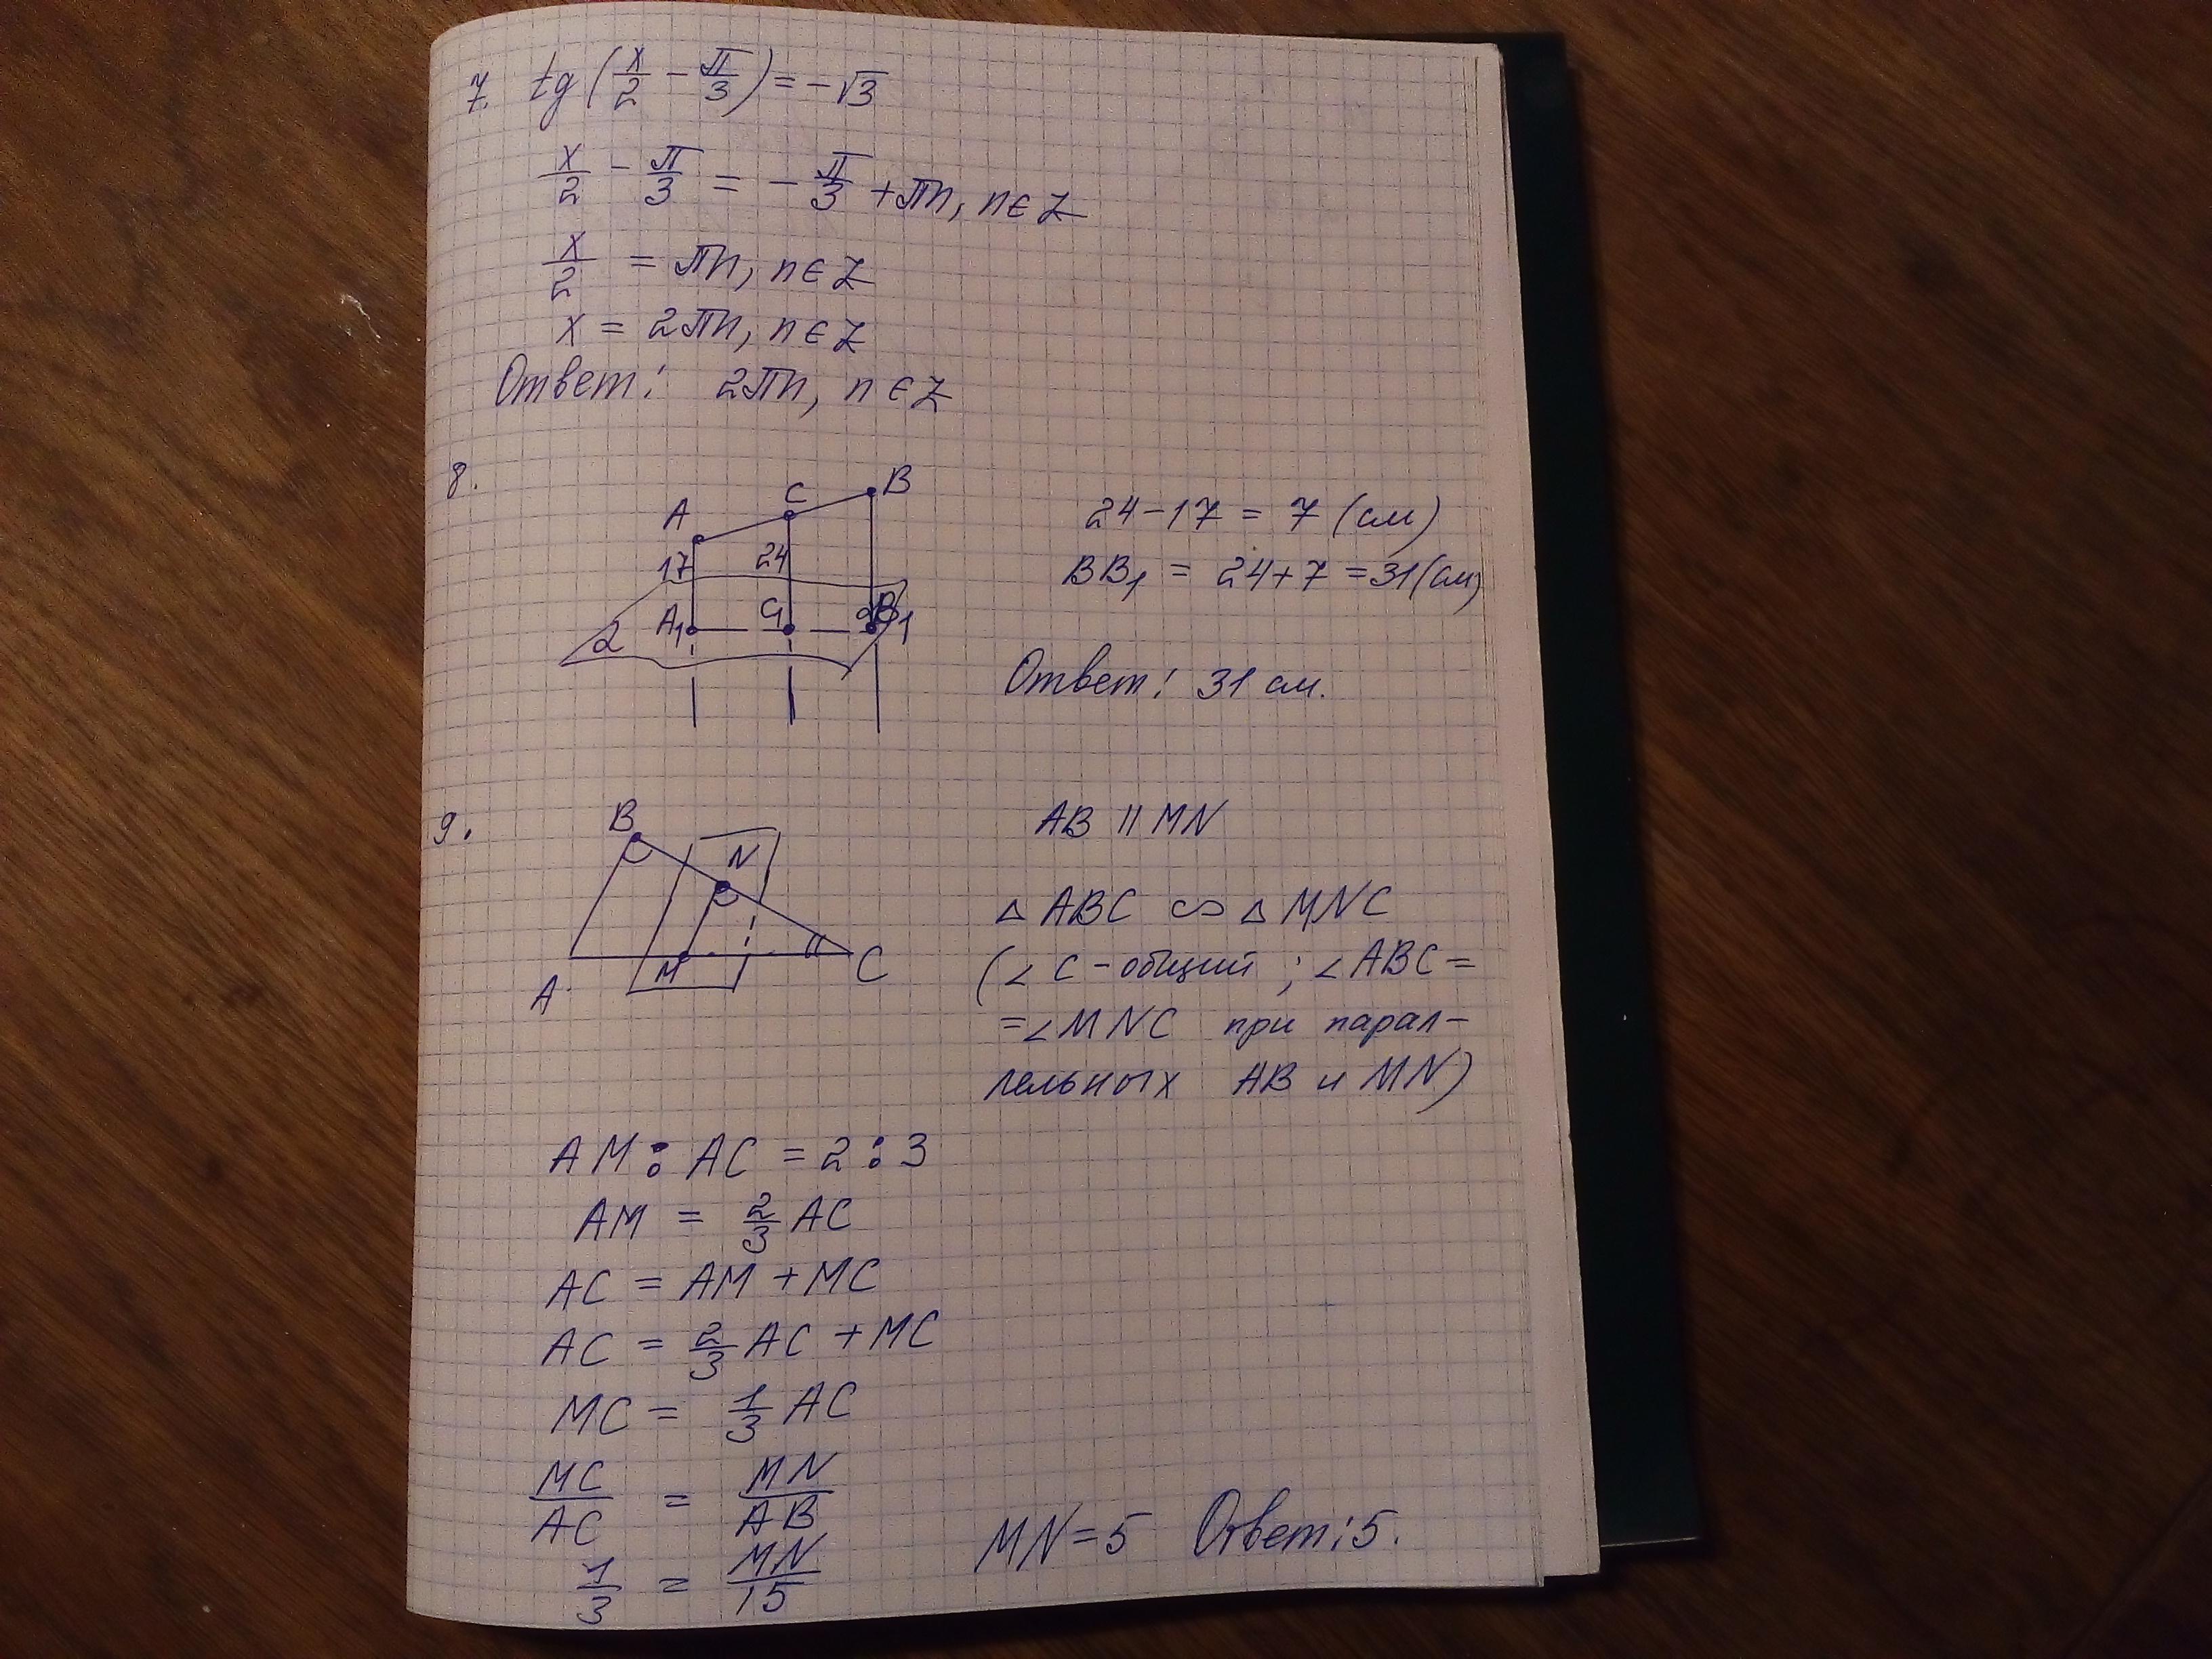 7. tg(x/2 − π/3) = −√3
x/2 − π/3 = −π/3 + πn, n∈Z
x/2 = πn, n∈Z
x = 2πn, n∈Z
Ответ: 2πn, n∈Z
8.
A C B
17 24
A₁ C₁ B₁
α
24−17 = 7 (см)
BB₁ = 24+7 = 31(см)
Ответ: 31 см.
9.
B
N
A M C
AB || MN
△ABC ∽ △MNC
(∠C - общий ; ∠ABC =
= ∠MNC при парал-
лельных AB и MN)
AM : AC = 2 : 3
AM = 2/3 AC
AC = AM + MC
AC = 2/3 AC + MC
MC = 1/3 AC
MC/AC = MN/AB
1/3 = MN/15
MN = 5 Ответ: 5.